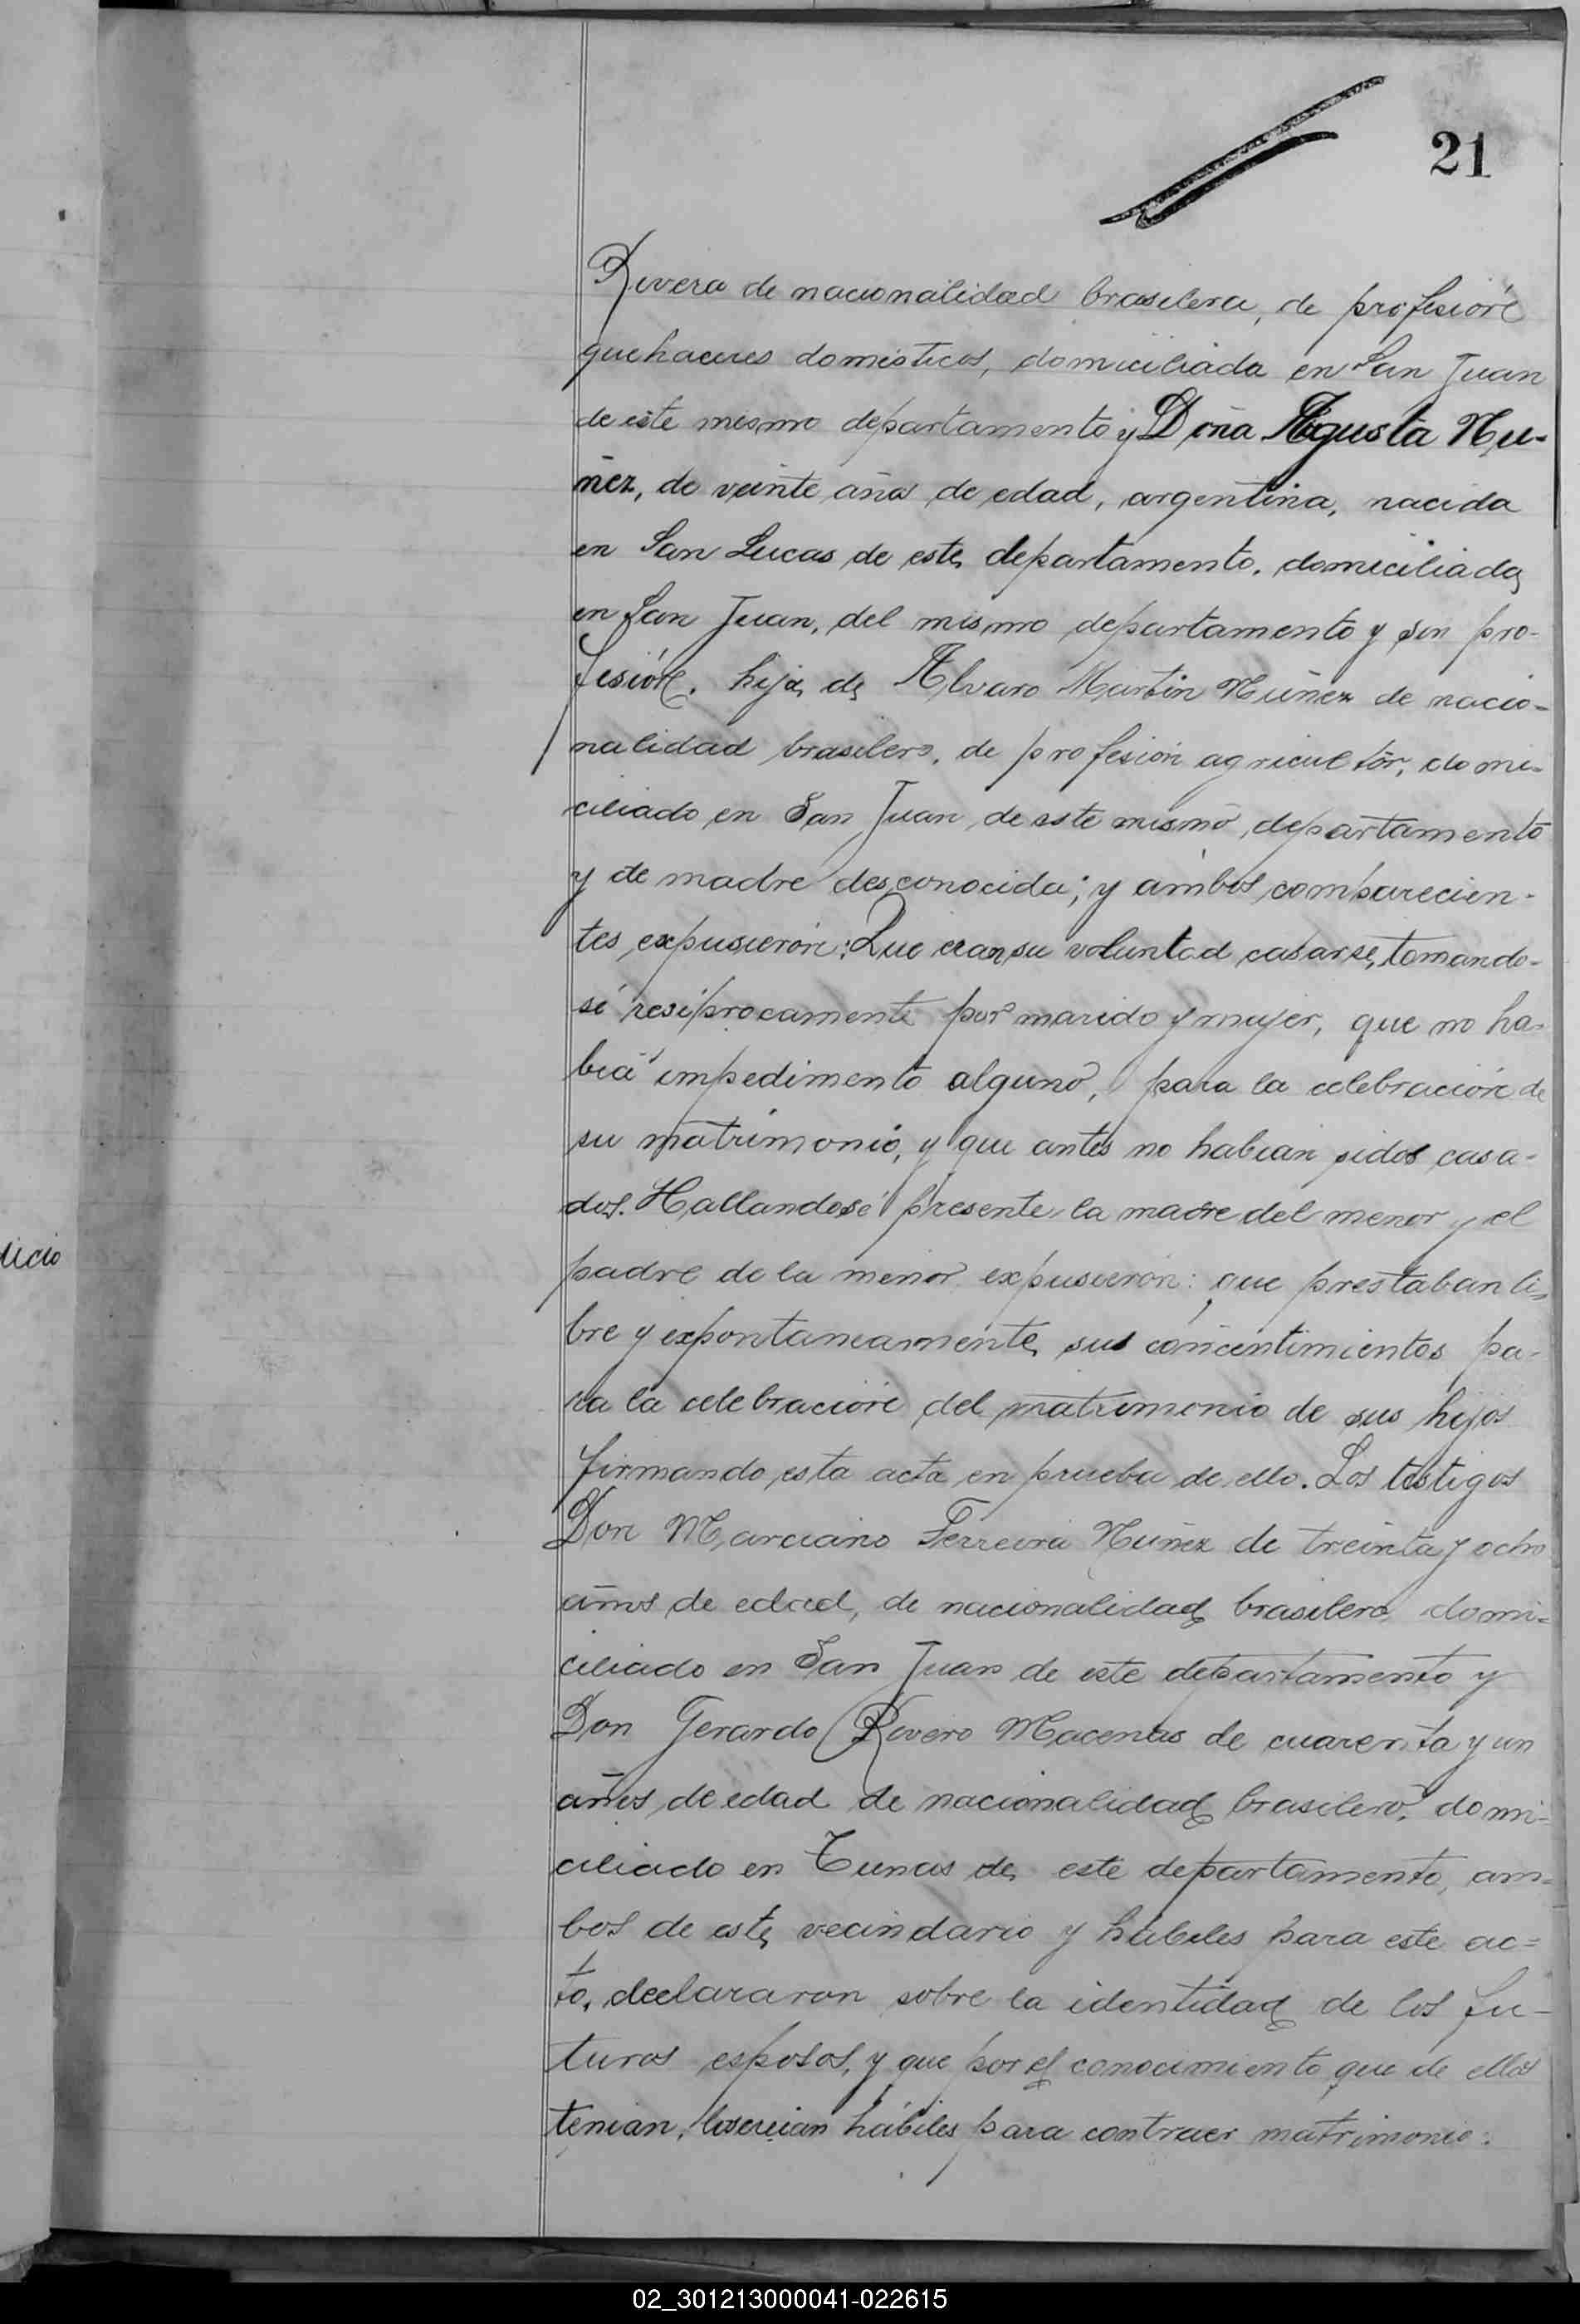 21
Rivera de nacionalidad brasilera, de profesión
quehaceres domésticos, domiciliada en San Juan
de este mismo departamento y Doña Agusta Nu-
ñez, de veinte años de edad, argentina, nacida
en San Lucas de este departamento, domiciliada
en San Juan, del mismo departamento y sin pro-
fesión, hija de Alvaro Martin Núñez de nacio-
nalidad brasilero, de profesión agricultor, domi-
ciliado en San Juan, de este mismo, departamento
y de madre desconocida; y ambos comparecien-
tes expusieron: Que eran su voluntad casarse, tomando-
sé resiprocamente por marido y mujer, que no ha-
bia impedimento alguno, para la celebración de
su matrimonio, y que antes no habian sidos casa-
dos. Hallandosé presente la madre del menor y el
padre de la menor expusieron: que prestaban li-
bre y expontaneamente sus concentimientos pa-
ra la celebración del matrimonio de sus hijos
firmando esta acta en prueba de ello. Los testigos
Don Marciano Ferreira Núñez de treinta y ocho
años de edad, de nacionalidad brasilero, domi-
ciliado en San Juan de este departamento y
Don Gerardo Rivero Macenas de cuarenta y un
años de edad de nacionalidad brasilero, domi-
ciliado en Tunas de este departamento, am-
bos de este vecindario y habiles para este ac-
to, declararon sobre la identidad de los fu-
turos esposos, y que por el conocimiento que de ellos
tenian, los creian hábiles para contraer matrimonio.
licio
02_301213000041-022615